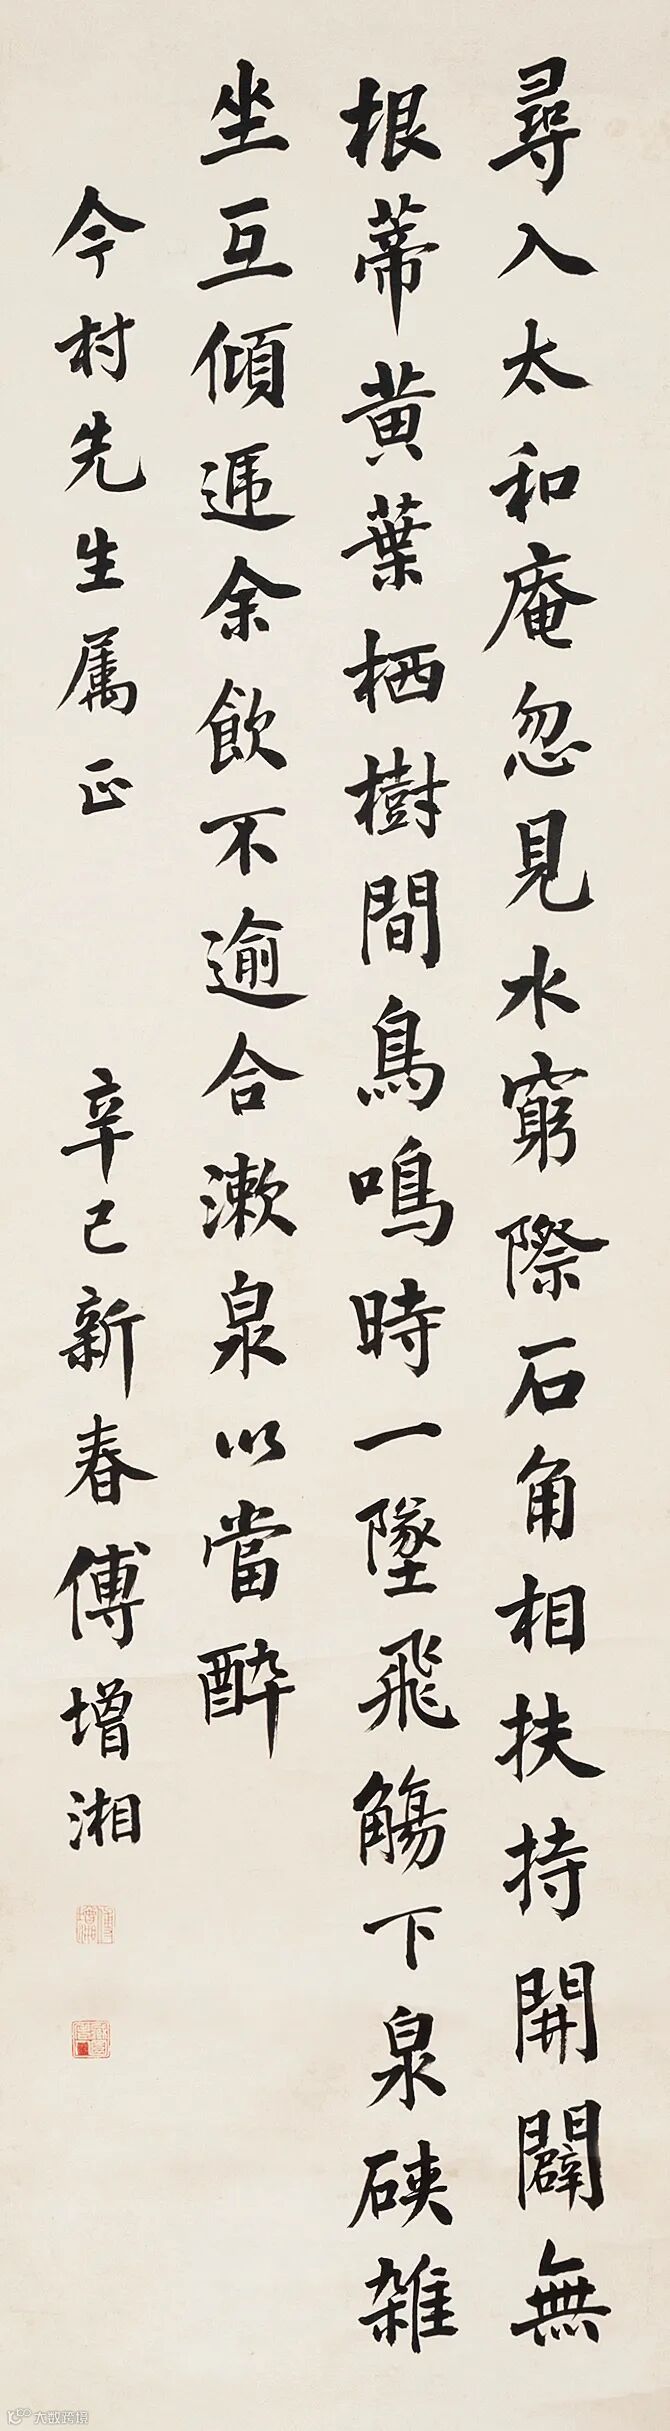 尋入太和庵忽見水窮際石角相扶持開闢無
根蒂黃葉栖樹間鳥鳴時一墜飛觴下泉硤雜
坐互傾遞余飲不逾合漱泉以當醉
今村先生属正 辛巳新春傅增湘
傅增湘
大数跨境